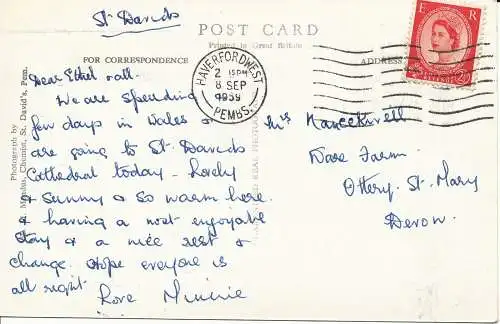 St Davids
POST CARD
Printed in Great Britain
FOR CORRESPONDENCE
ADDRESS
Dear Ethel & all.
We are spending
few days in Wales &
are going to St. Davids
Cathedral today - Lovely
& Sunny & So warm here.
& having a most enjoyable
Stay & a nice rest &
change. Hope everyone is
all right
Love Minnie
HAVERFORDWEST
2 15PM
8 SEP
1959
PEMBS.
E R
Mrs Nancekivell
Dare Farm
Ottery. St. Mary
Devon.
Photograph by
Mendus, Chemist, St. David's, Pem.